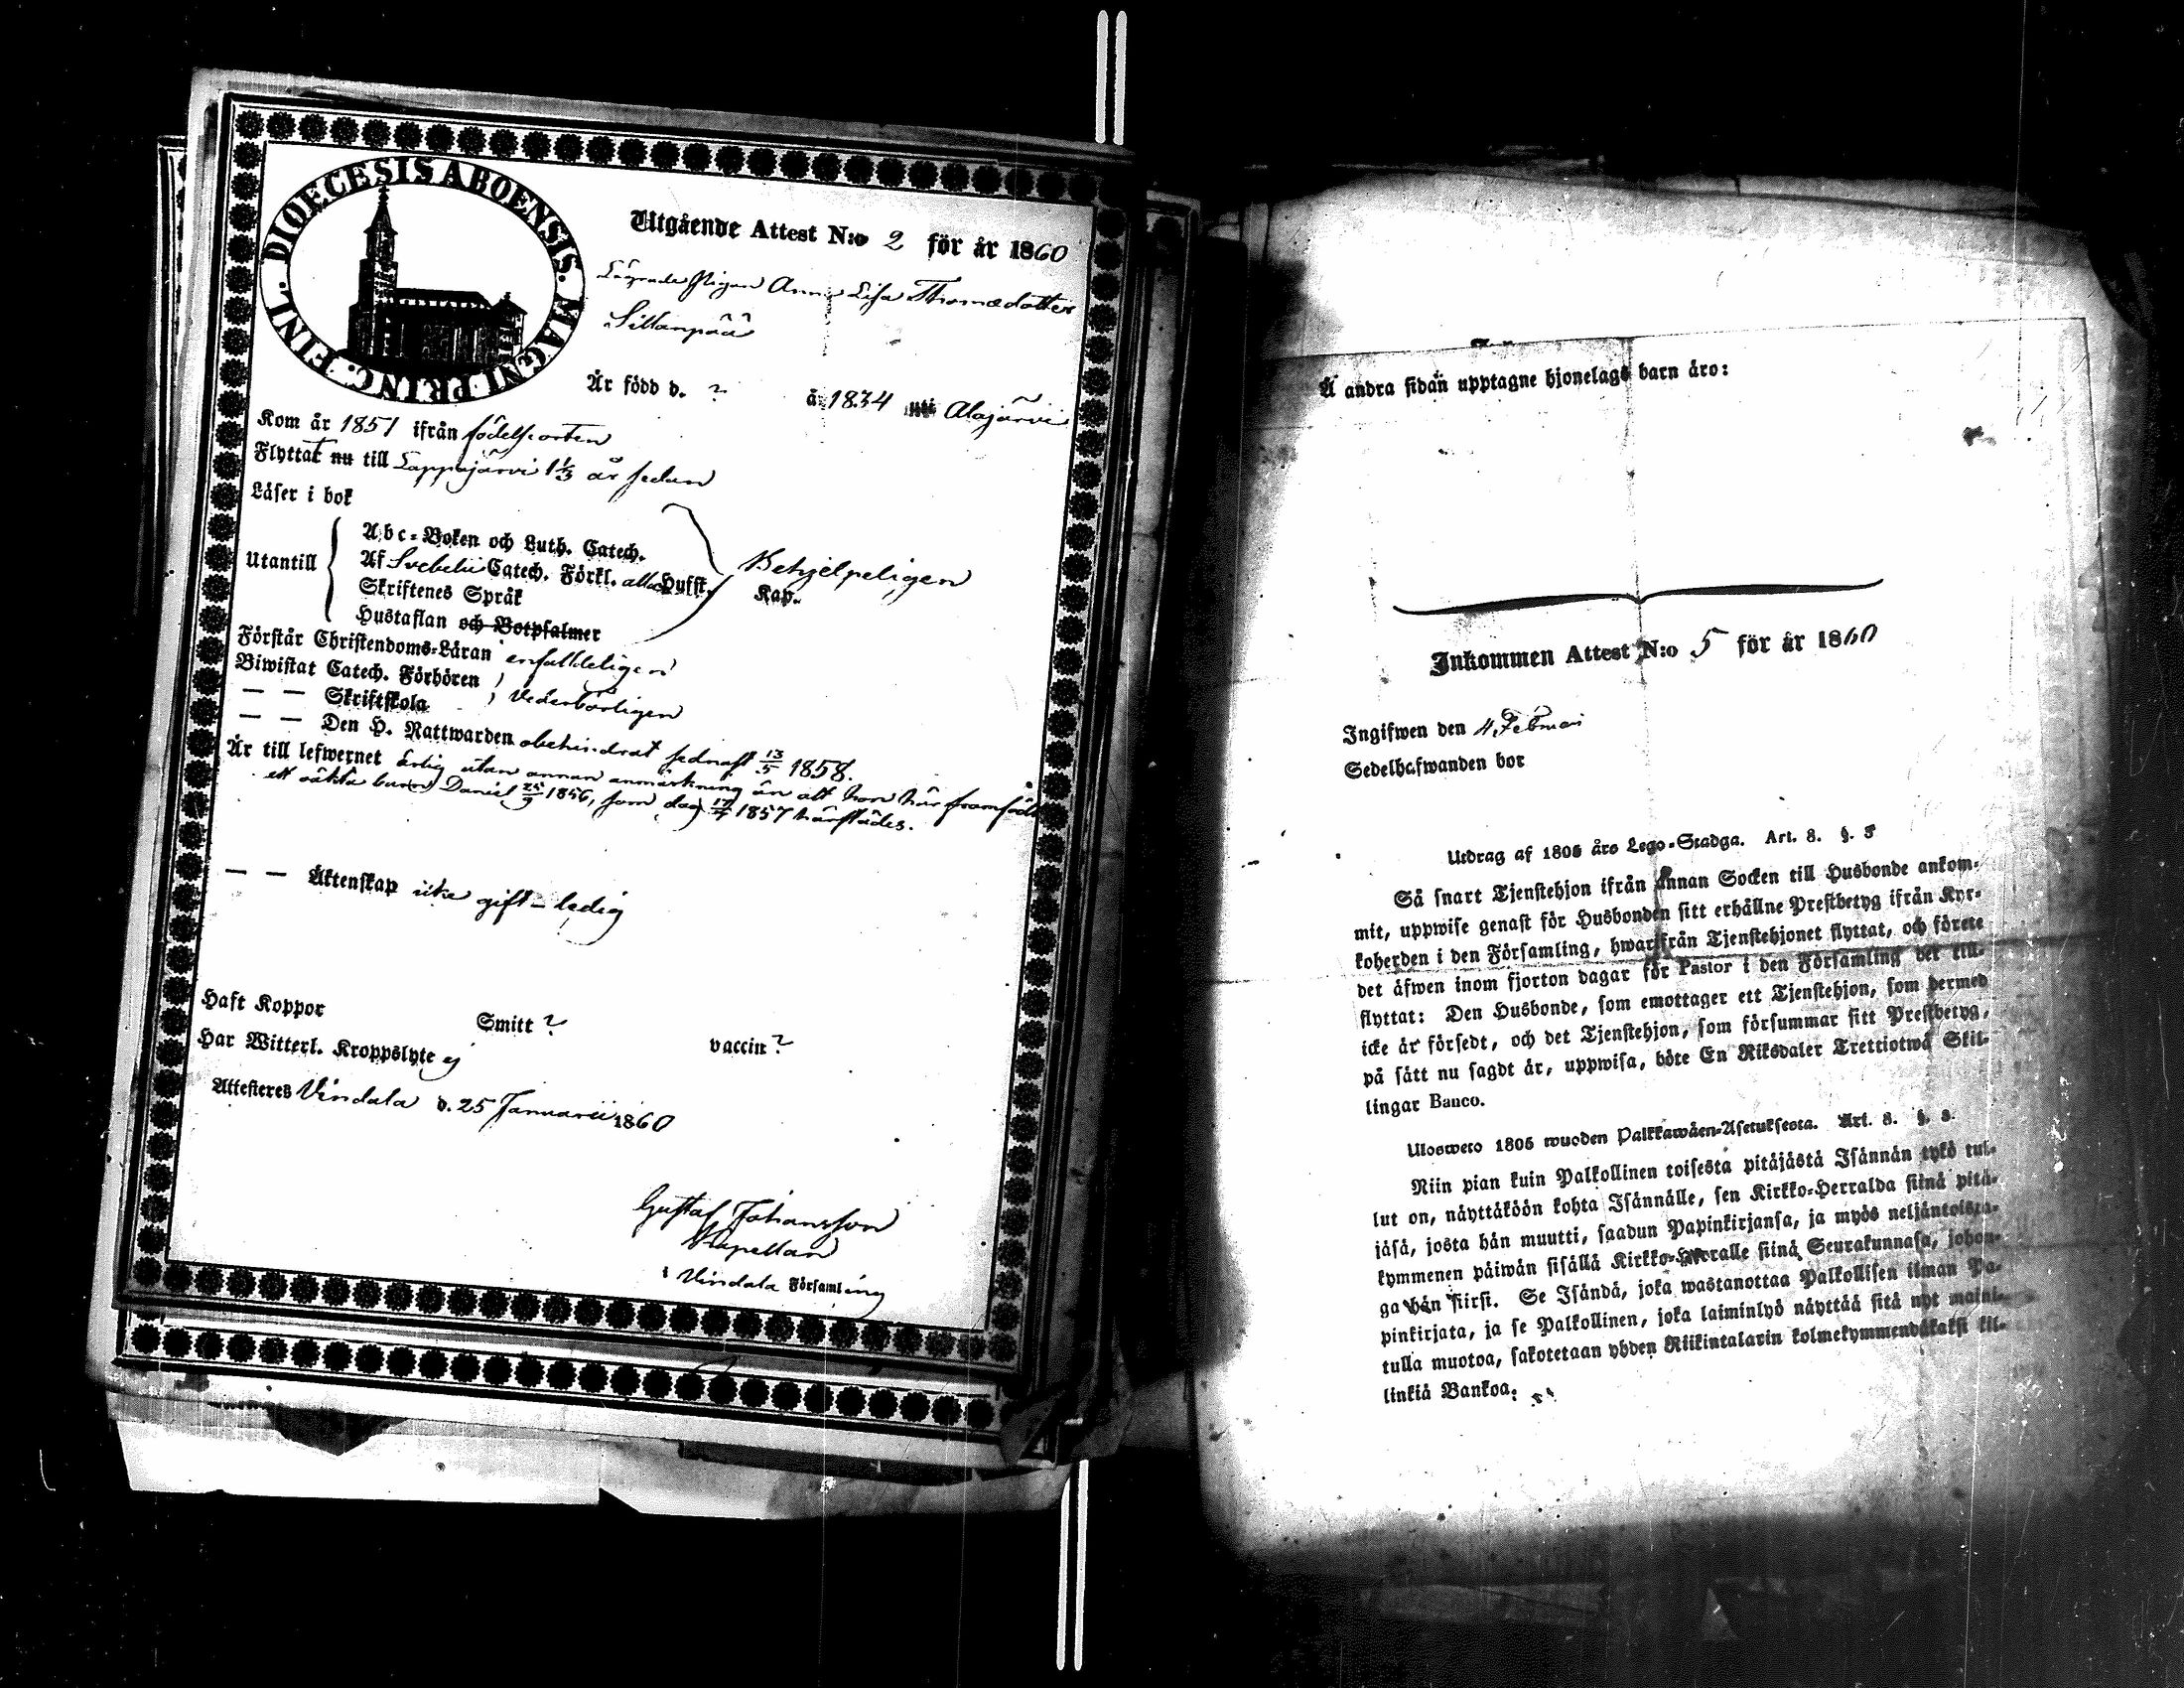 DIOECESIS ABOENSIS. MAGNI PRINC. FINL.
Utgående Attest N:o 2 för år 1860
Lägrade Pigan Anna Lisa Thomædotter
Sillanpää
Är född d. ? å 1834 uti Alajärvi
Kom år 1851 ifrån födelseorten
Flyttat nu till Lappajärvi 1 1/3 år sedan
Läser i bok
Utantill
Abc-Boken och Luth. Catech.
Af Svebelii Catech. Förkl. alla Hufst.
Behjelpeligen
Skriftenes Språk Kap.
Hustaflan och Botpsalmer
Förstår Christendoms-Läran enfaldeligen
Biwistat Catech. Förhören
— — Skriftskola vederbörligen
— — Den H. Nattwarden obehindrat sednast 13/5 1858.
Är till lefwernet ärlig utan annan anmärkning än att hon här framfödt
ett oäkta barn Daniel 25/9 1856, som dog 17/4 1857 härstädes.
— — Äktenskap icke gift - ledig
Haft Koppor Smitt ? vaccin ?
Har Witterl. Kroppslyte ej
Attesteres Vindala d. 25 Januarii 1860
Gustaf Johansson
Kapellan
i Vindala Församling
Å andra sidan upptagne hjonelags barn äro:
Inkommen Attest N:o 5 för år 1860
Ingifwen den 4 Februari
Sedelhafwanden bor
Utdrag af 1805 års Lego-Stadga. Art. 8. §. 3
Så snart Tjenstehjon ifrån annan Socken till Husbonde ankom-
mit, uppwise genast för Husbonden sitt erhållne Prestbetyg ifrån Kyr-
koherden i den Församling, hwarifrån Tjenstehjonet flyttat, och förete
det äfwen inom fjorton dagar för Pastor i den Församling det till-
flyttat: Den Husbonde, som emottager ett Tjenstehjon, som dermed
icke är försedt, och det Tjenstehjon, som försummar sitt Prestbetyg,
på sätt nu sagdt är, uppwisa, böte En Riksdaler Trettiotwå Skil-
lingar Banco.
Ulosweto 1805 wuoden Palkkawäen-Asetuksesta. Art. 8. §. 3.
Niin pian kuin Palkollinen toisesta pitäjästä Isännän tykö tul-
lut on, näyttäköön kohta Isännälle, sen Kirkko-Herralda siinä pitä-
jäsä, josta hän muutti, saadun Papinkirjansa, ja myös neljäntoista-
kymmenen päiwän sisällä Kirkko-Herralle siinä Seurakunnasa, johon-
ga hän siirsi. Se Isändä, joka wastanottaa Palkollisen ilman Pa-
pinkirjata, ja se Palkollinen, joka laiminlyö näyttää sitä nyt maini-
tulla muotoa, sakotetaan yhden Riikintalarin kolmekymmendäkaksi kil-
linkiä Bankoa.